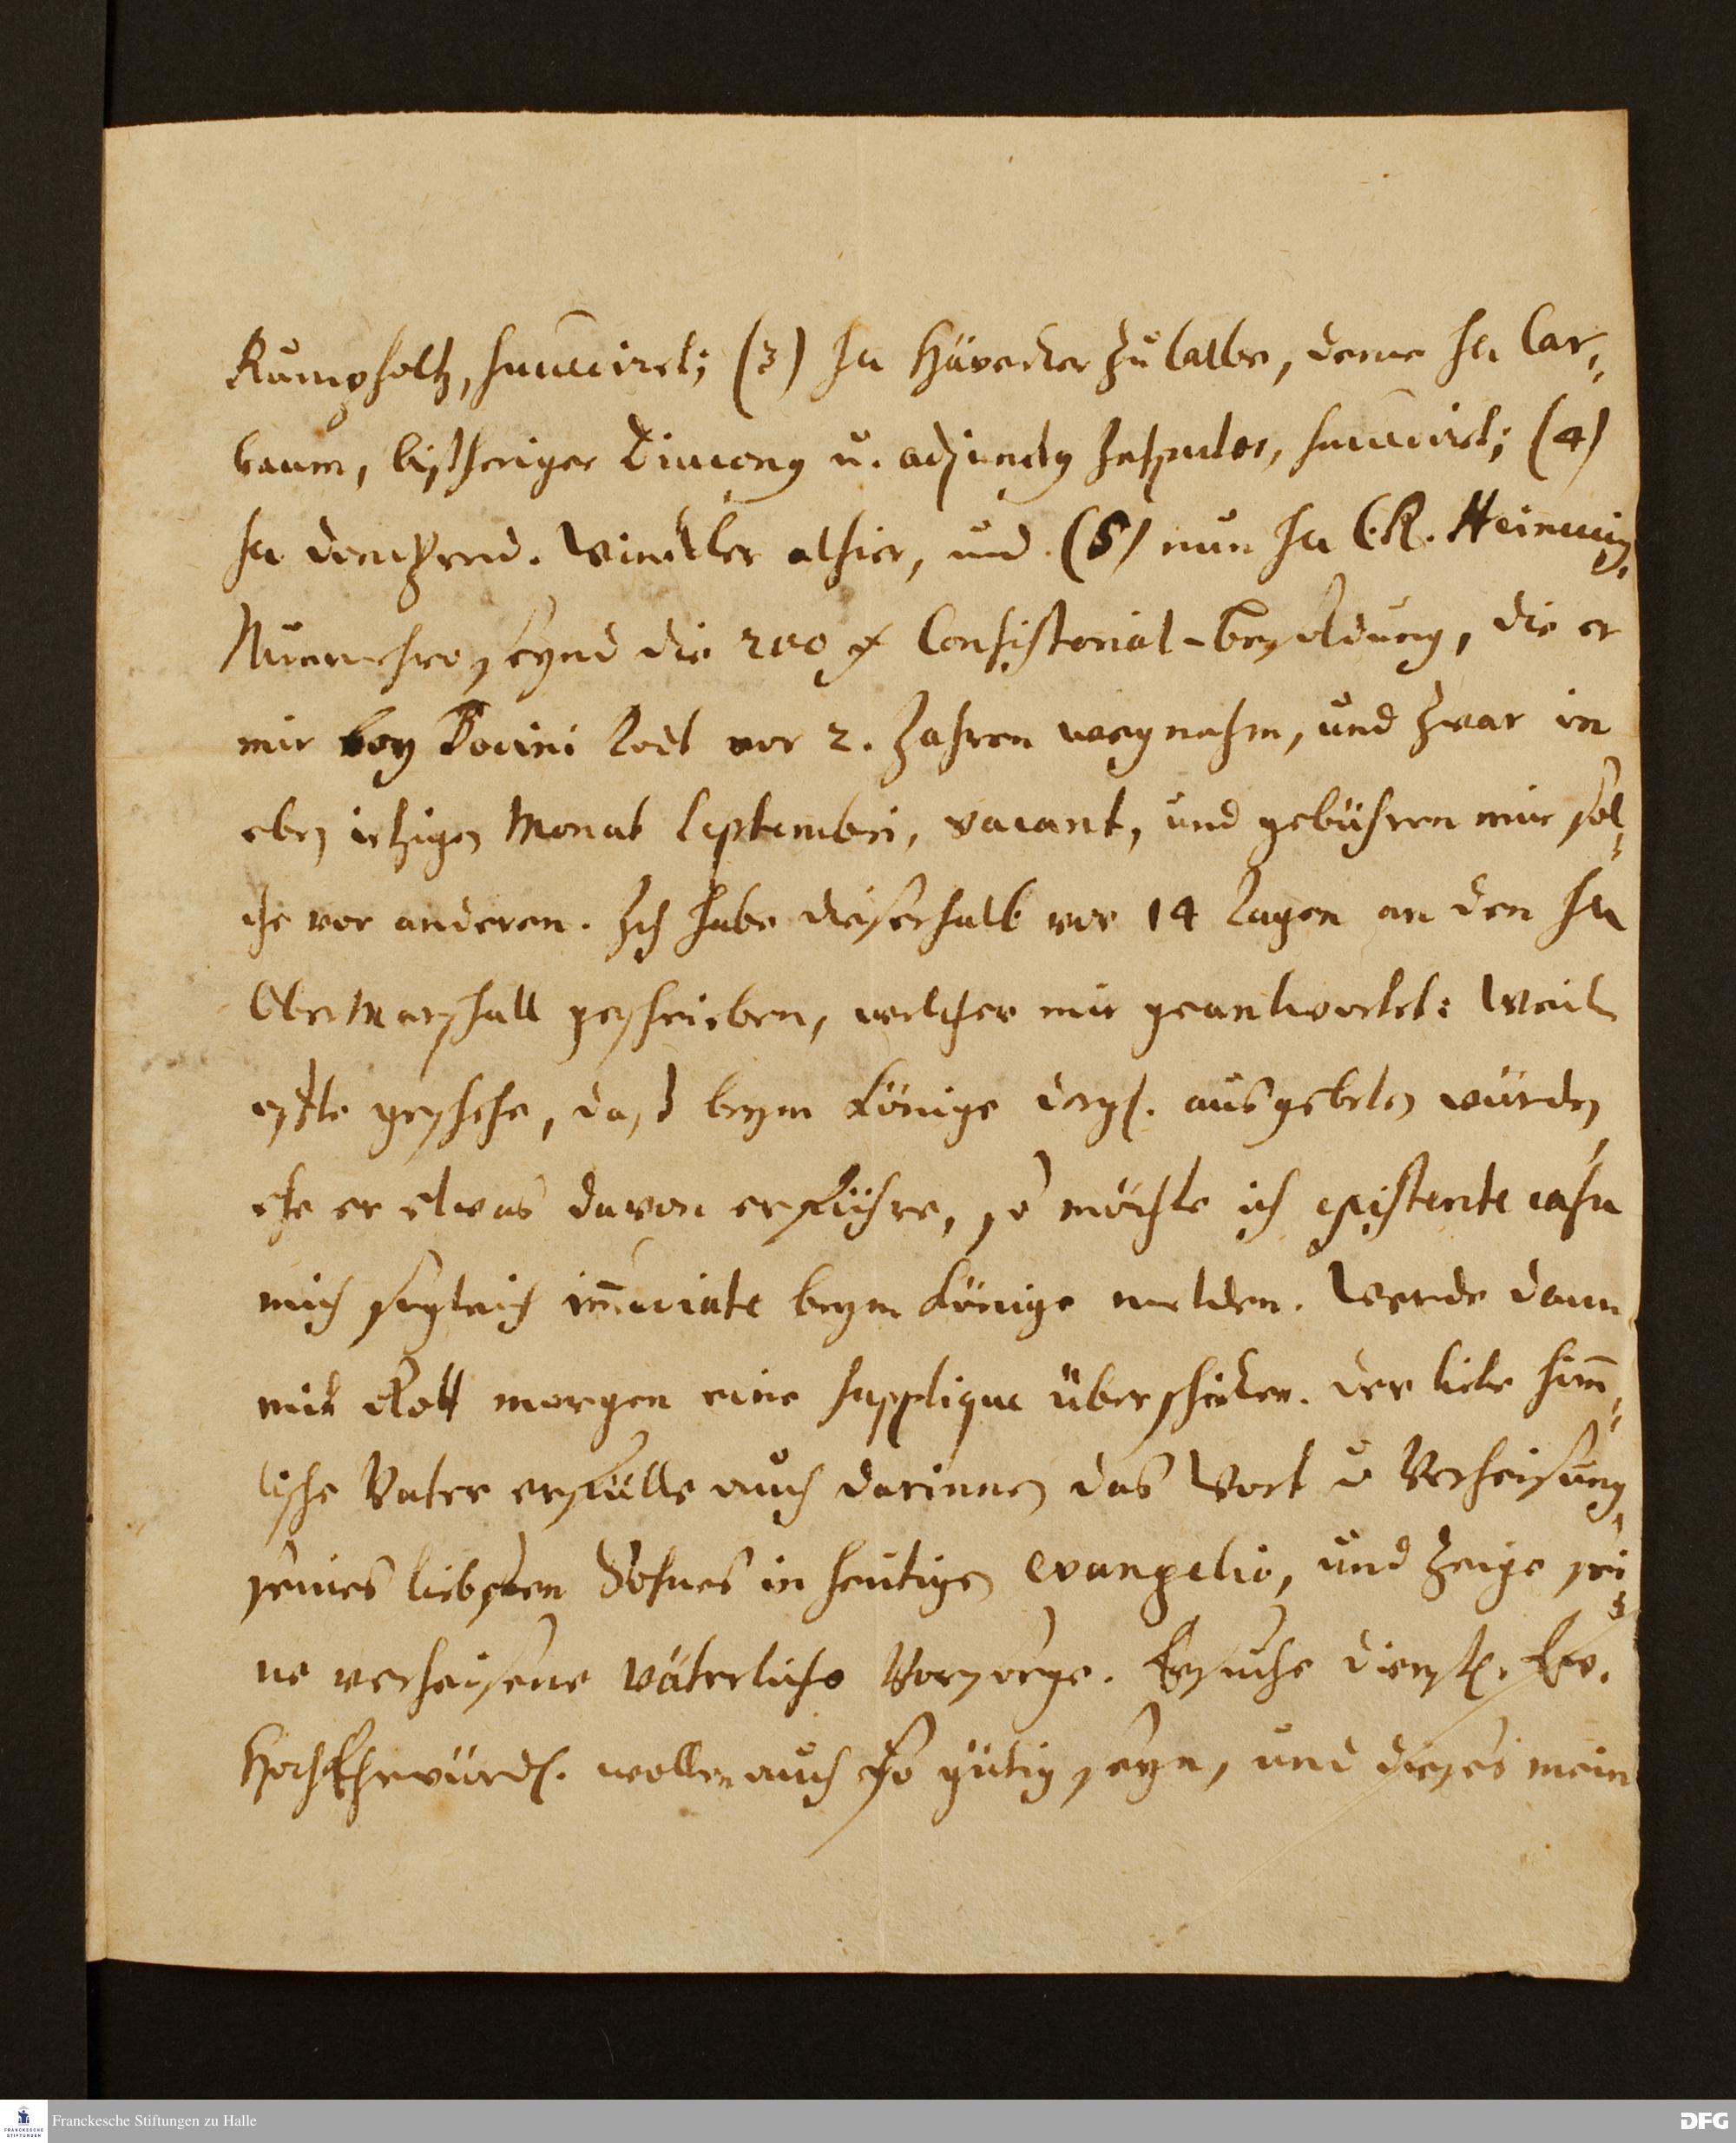 Rumpholtz, succedirt; (3) H. Hävecker zu Calbe, deme H. Car-
baum, bißheriger Diaconus u. adjunctus Inspector, succedirt; (4)
H. Dompred. Winckler alhier, und (5) nun H. C.R. Heineccius.
Nunmehro seynd die 200 rh Consistorial-Besoldung, die er
mir bey Bocini Todt vor 2. Jahren wegnahm, und zwar in
eben ietzigen Monat Septembri, vacant, und gebühren mir sol-
che vor anderen. Ich habe dieserhalb vor 14 Tagen an den H.
OberMarschall geschrieben, welcher mir geantwortet: Weil
offte geschehe, daß beym Könige dergl. ausgebeten würden,
ehe er etwas davon erführe, so möchte ich existente casu
mich sogleich immediate beym Könige melden. Werde dann
mit Gott morgen eine supplique überschicken. Der liebe himm-
lische Vater erfülle auch darinnen das Wort u Verheisung
seines liebsten Sohnes in heutigen Evangelio, und zeige sei-
ne verheisene väterliche Vorsorge. Ersuche dienstl. Ew.
HochEhrwürd. wollen auch so gütig seyn, und dieses mein
Franckesche Stiftungen zu Halle
FRANCKESCHE STIFTUNGEN
DFG